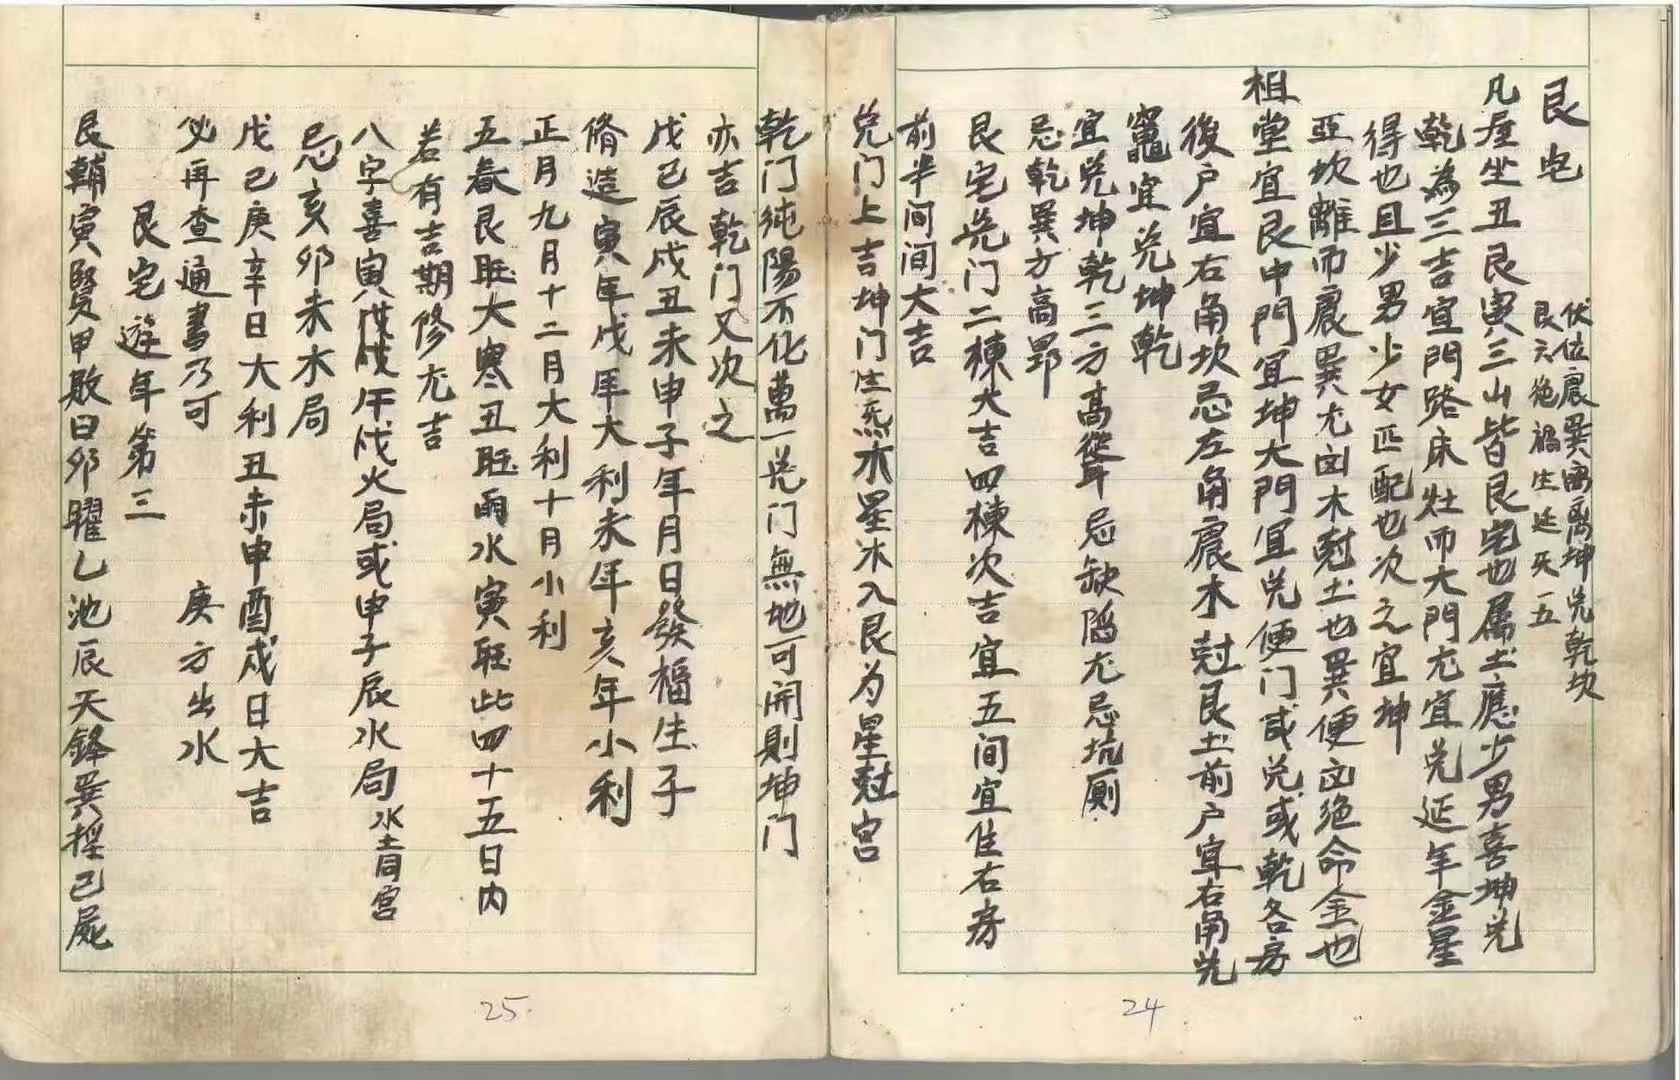 艮宅
伏位震巽離坤兑乾坎
艮六绝禍生延天五
凡屋坐丑艮寅三山皆艮宅也属土應少男喜坤兑
乾為三吉宜門路床灶而大門尤宜兑延年金星
得也且少男少女匹配也次之宜坤
亞坎離而震巽尤凶木尅土也巽便凶绝命金也
祖堂宜艮中門宜坤大門宜兑便门或兑或乾各房
後户宜右角坎忌左角震木尅艮土前户宜右角兑
竈宜兑坤乾
宜兑坤乾三方高聳忌缺陷尤忌坑厠
忌乾巽方高昂
艮宅兑门二棟大吉四棟次吉宜五间宜住右房
前半间间大吉
兑门上吉坤门生炁木星木入艮为星尅宫
乾门純陽不化萬一兑门無地可開則坤门
亦吉乾门又次之
戊己辰戌丑未申子年月日發福生子
脩造寅年戌年大利未年亥年小利
正月九月十二月大利十月小利
五春艮旺大寒丑旺雨水寅旺此四十五日内
若有吉期修尤吉
八字喜寅戌午戌火局或申子辰水局水青宫
忌亥卯未木局
戊己庚辛日大利丑未申酉戍日大吉
必再查通書乃可 庚方出水
艮宅遊年第三
艮輔寅賢甲敗曰卯曜乙池辰天鋒巽摇己屍
25
24